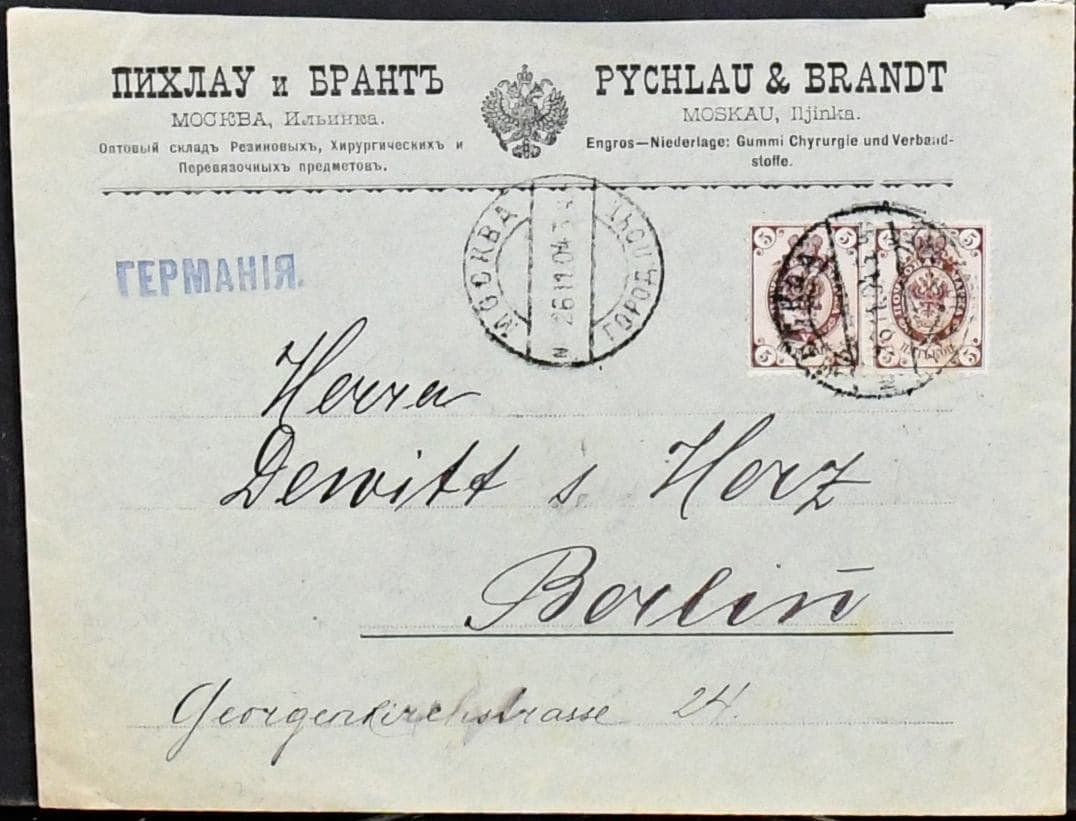 ПИХЛАУ и БРАНТЪ
МОСКВА, Ильинка.
Оптовый складъ Резиновыхъ, Хирургическихъ и
Перевязочныхъ предметовъ.
PYCHLAU & BRANDT
MOSKAU, Iljinka.
Engros—Niederlage: Gummi Chyrurgie und Verband-
stoffe.
ГЕРМАНІЯ.
МОСКВА
26 11 04
ГОРОД
5 5 5 5
5 5 5 5
Herrn
Dewitt & Herz
Berlin
Georgenkirchstrasse 24.